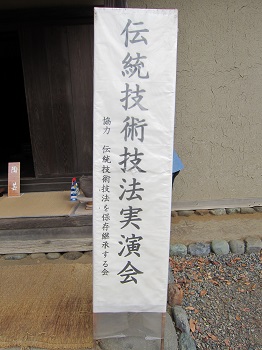 伝統技術技法実演会
協力 伝統技術技法を保存継承する会